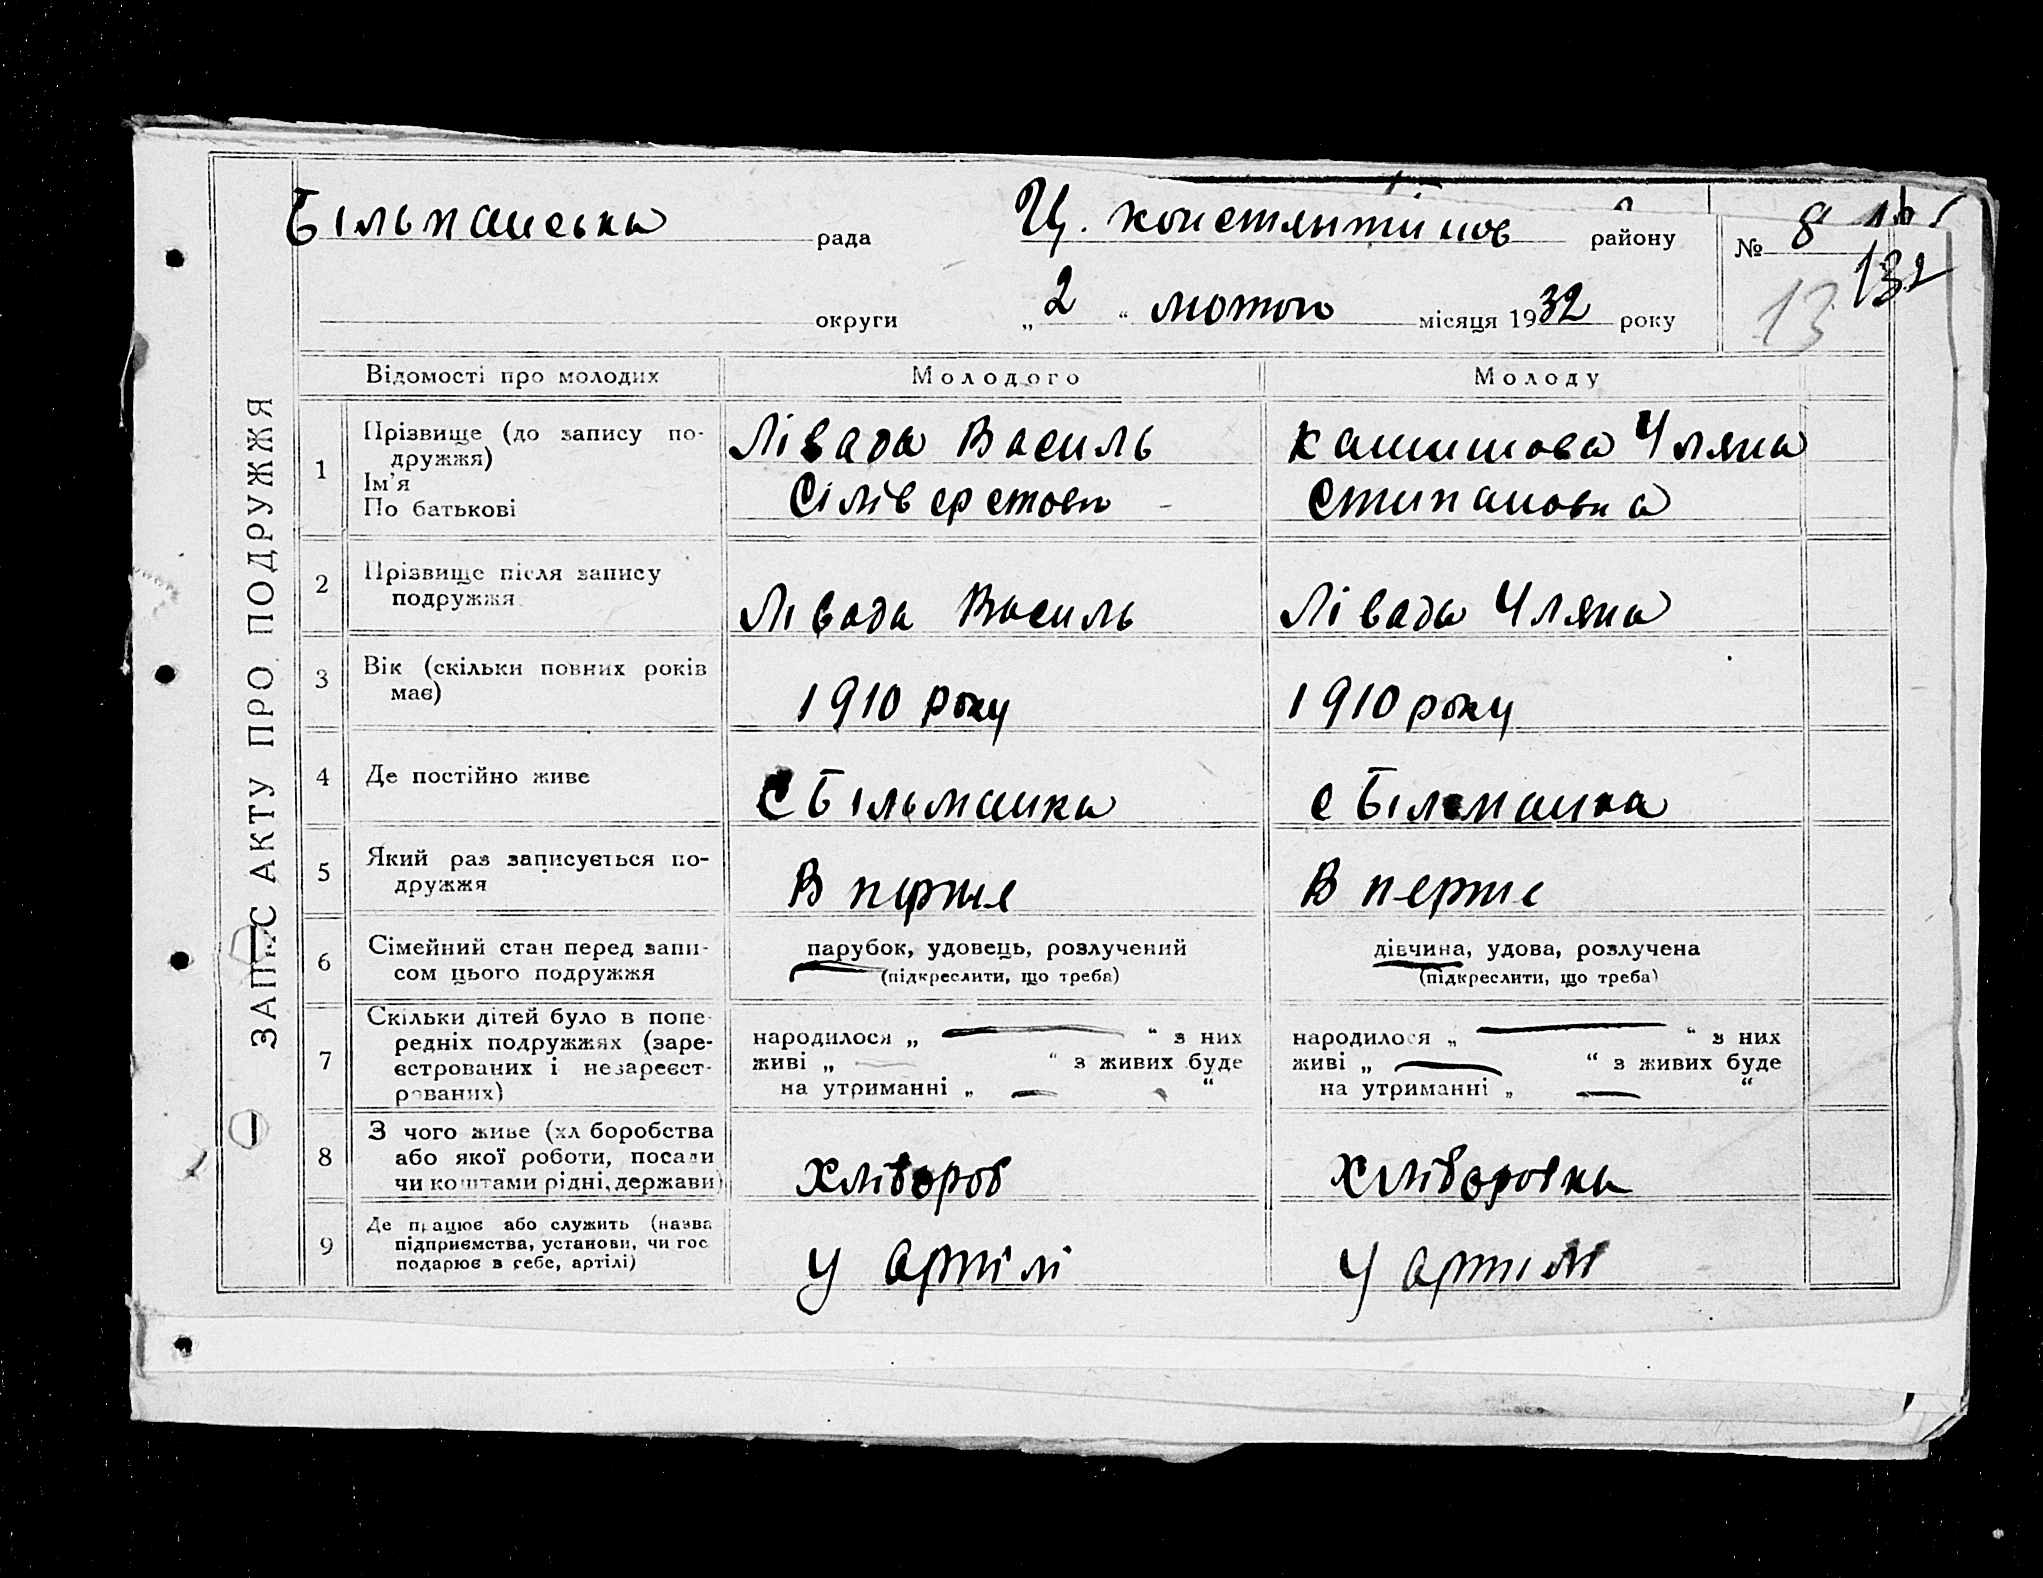 Більманська рада Ц. константінов району № 8
132
округи „ 2 “ лютого місяця 1932 року 13
ЗАПИС АКТУ ПРО ПОДРУЖЖЯ
Відомості про молодих Молодого Молоду
1 Прізвище (до запису по- Лівада Василь Уляна
дружжя)
Ім’я Сіліверстови Стипановна
По батькові
2 Прізвище після запису
подружжя Лівада Василь Лівада Уляна
3 Вік (скільки повних років
має) 1910 року 1910 року
4 Де постійно живе С Більманка с Більманка
5 Який раз записується по-
дружжя В перше В перше
6 Сімейний стан перед запи- парубок, удовець, розлучений дівчина, удова, розлучена
сом цього подружжя (підкреслити, що треба) (підкреслити, що треба)
7 Скільки дітей було в попе-
редніх подружжях (заре- народилося „ “ з них народилося „ “ з них
єстрованих і незареєст- живі „ “ з живих буде живі „ “ з живих буде
рованих) на утриманні „ “ на утриманні „ “
8 З чого живе (хліборобства
або якої роботи, посади
чи коштами рідні, держави) Хлібороб Хліборобка
9 Де працює або служить (назва
підприємства, установи, чи гос у артілі у артілі
подарює в себе, артілі)